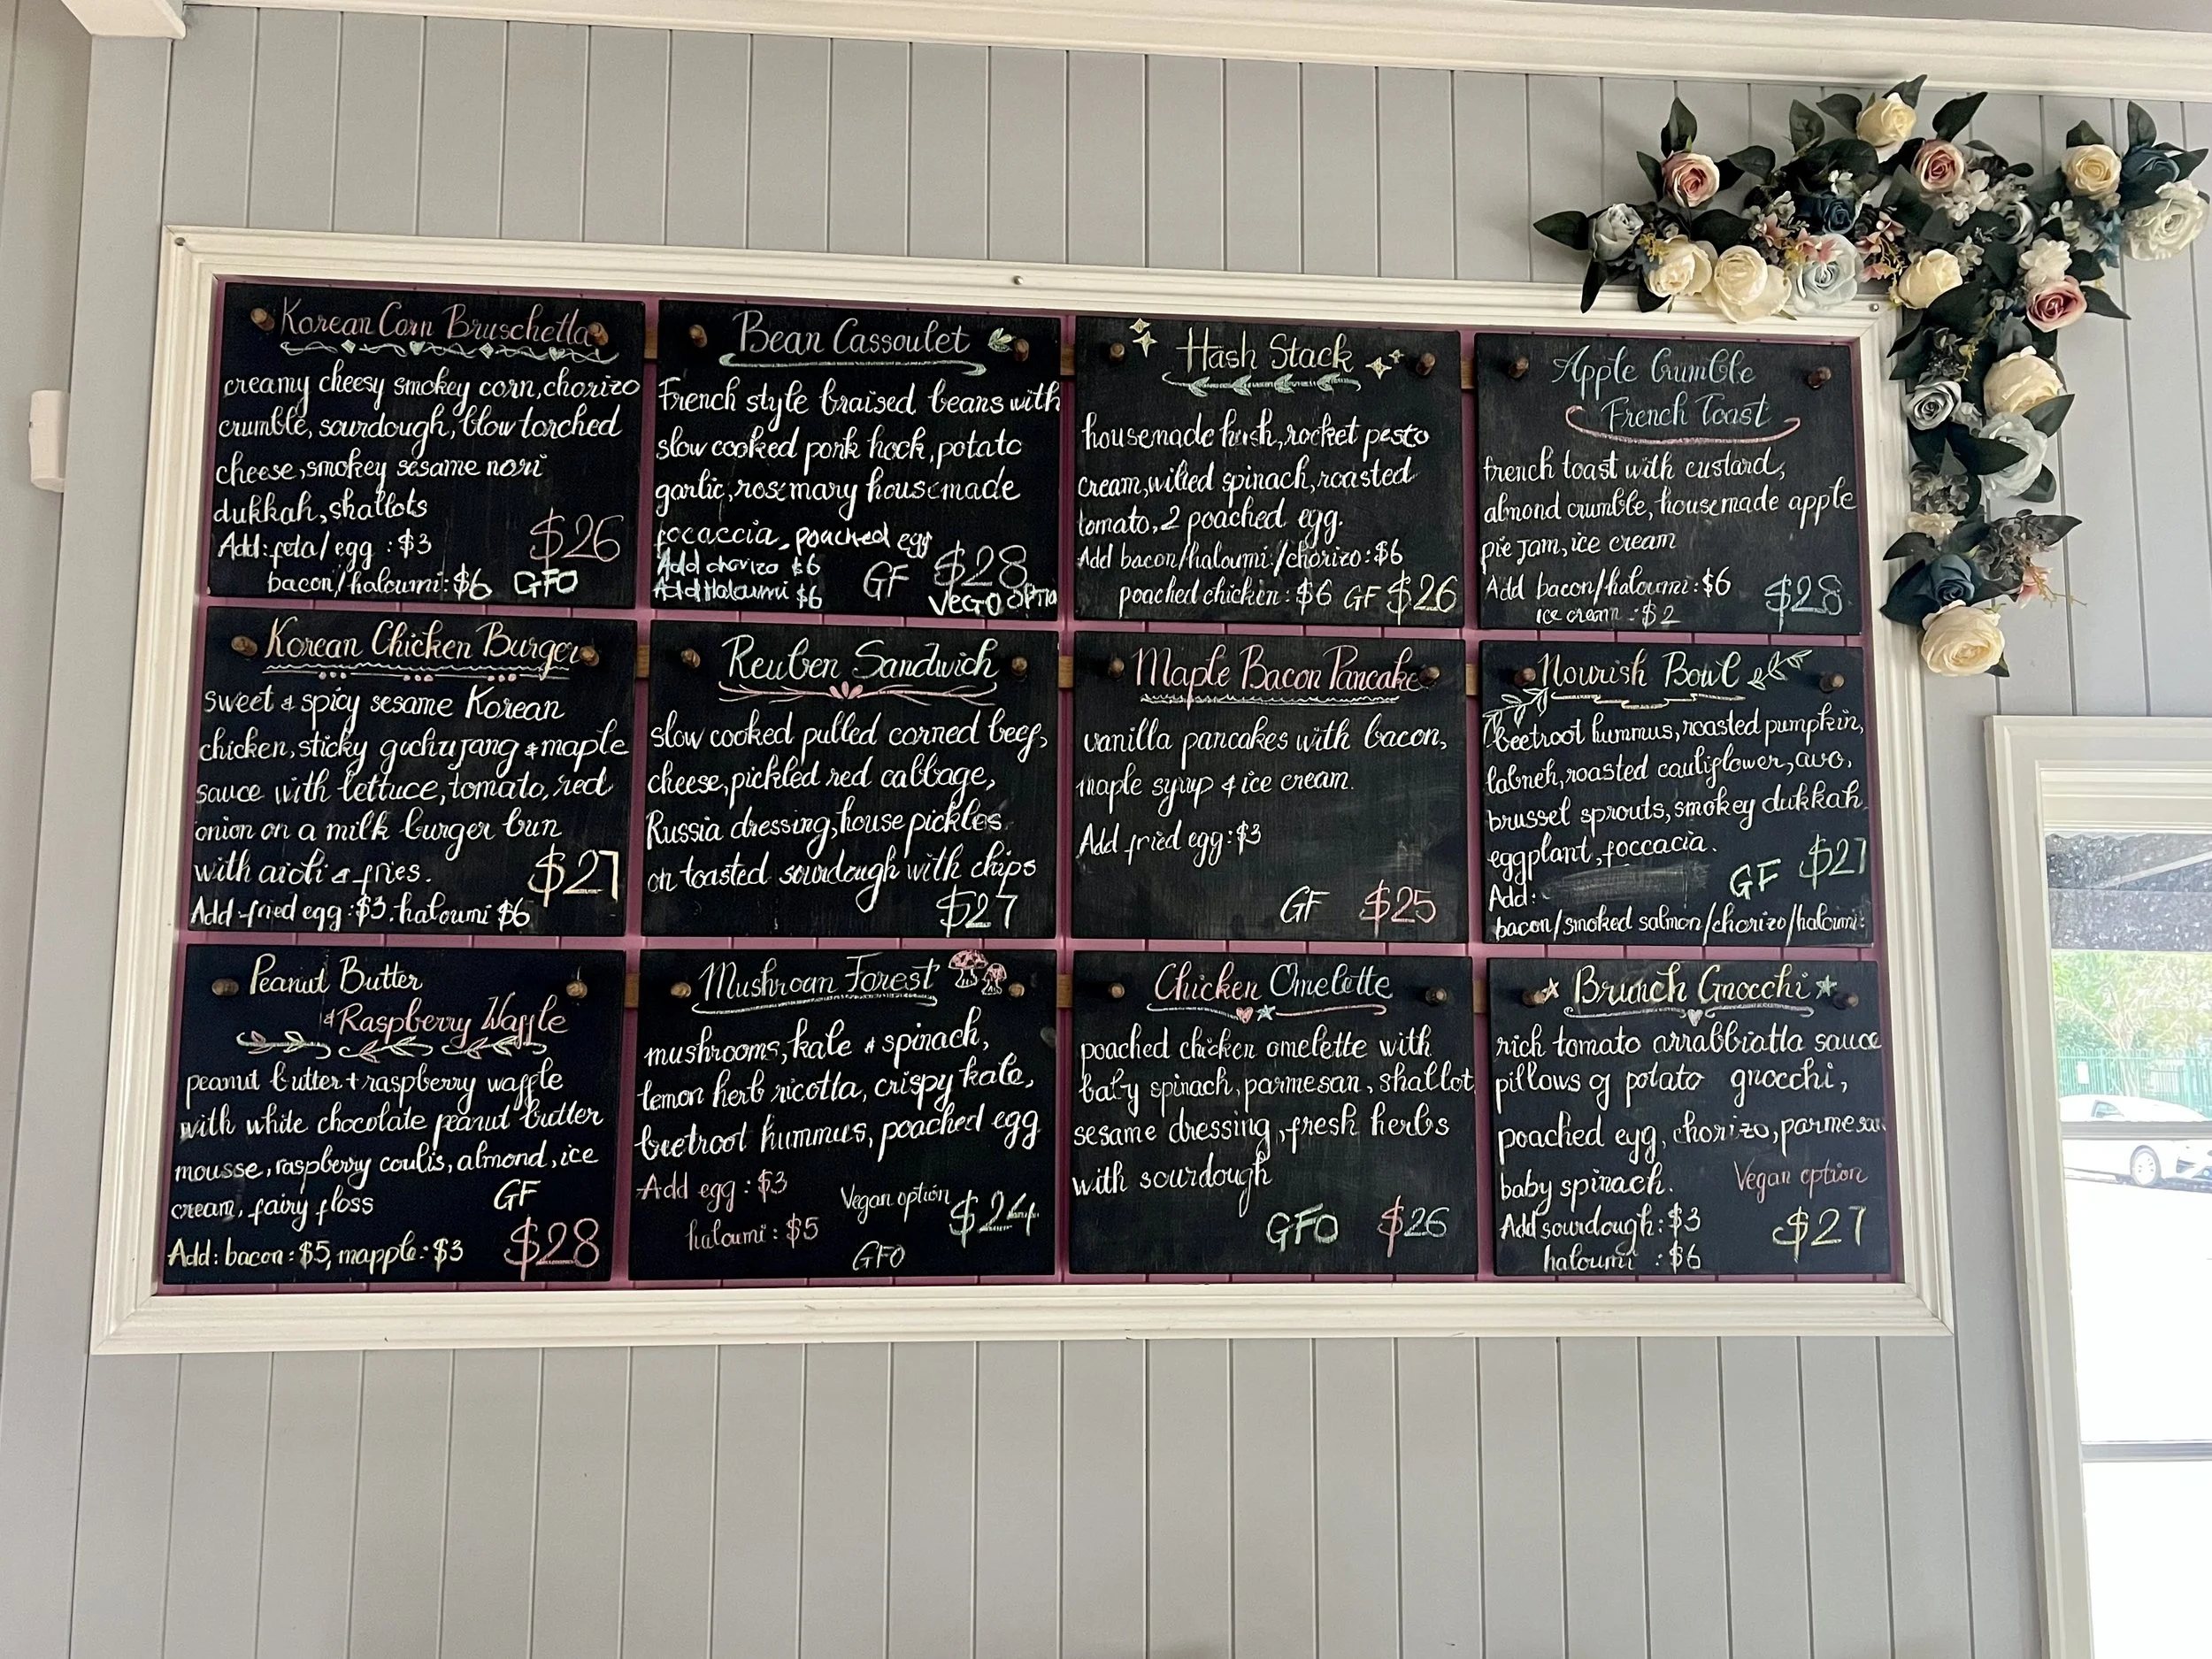 Korean Corn Bruschetta
creamy cheesy smokey corn, chorizo
crumble, sourdough, blow torched
cheese, smokey sesame nori
dukkah, shallots
Add: feta/egg : $3
bacon/haloumi: $6 GFO
$26
Bean Cassoulet
French style braised beans with
slow cooked pork hock, potato
garlic, rosemary housemade
focaccia, poached egg
Add chorizo $6
Add Haloumi $6
GF $28
VEGO OPTIO
Hash Stack
housemade hash, rocket pesto
cream, wilted spinach, roasted
tomato, 2 poached egg.
Add bacon/haloumi/chorizo: $6
poached chicken: $6 GF $26
Apple Crumble
French Toast
french toast with custard,
almond crumble, housemade apple
pie jam, ice cream
Add bacon/haloumi: $6
ice cream : $2
$28
Korean Chicken Burger
sweet & spicy sesame Korean
chicken, sticky gochujang & maple
sauce with lettuce, tomato, red
onion on a milk burger bun
with aioli & fries.
$27
Add fried egg: $3. haloumi $6
Reuben Sandwich
slow cooked pulled corned beef,
cheese, pickled red cabbage,
Russia dressing, house pickles
on toasted sourdough with chips
$27
Maple Bacon Pancake
vanilla pancakes with bacon,
maple syrup & ice cream.
Add fried egg: $3
GF $25
Nourish Bowl
beetroot hummus, roasted pumpkin,
labneh, roasted cauliflower, avo,
brussel sprouts, smokey dukkah
eggplant, foccacia.
GF $27
Add:
bacon/smoked salmon/chorizo/haloumi:
Peanut Butter
& Raspberry Waffle
peanut butter + raspberry waffle
with white chocolate peanut butter
mousse, raspberry coulis, almond, ice
cream, fairy floss
GF
Add: bacon: $5, mapple: $3
$28
Mushroom Forest
mushrooms, kale & spinach,
lemon herb ricotta, crispy kale,
beetroot hummus, poached egg
Add egg : $3
haloumi : $5
Vegan option $24
GFO
Chicken Omelette
poached chicken omelette with
baby spinach, parmesan, shallot
sesame dressing, fresh herbs
with sourdough
GFO $26
Brunch Gnocchi
rich tomato arrabbiatta sauce
pillows of potato gnocchi,
poached egg, chorizo, parmesan
baby spinach.
Vegan option
Add sourdough: $3
haloumi : $6
$27